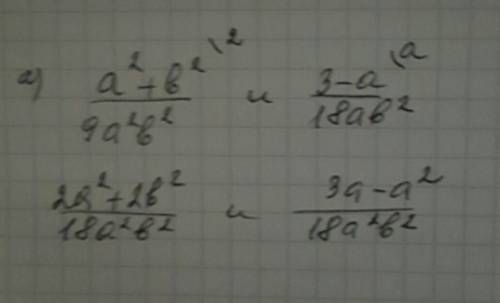 а) (a² + b²)/(9a²b²) \2 и (3 − a)/(18ab²) \a
(2a² + 2b²)/(18a²b²) и (3a − a²)/(18a²b²)